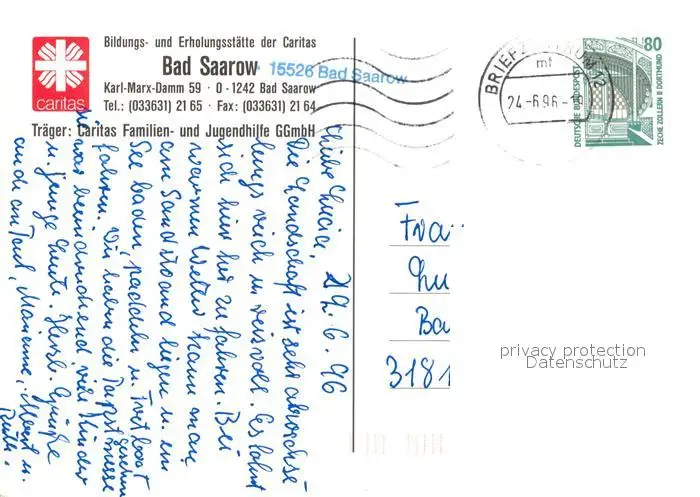 Bildungs- und Erholungsstätte der Caritas
Bad Saarow
Karl-Marx-Damm 59 · O-1242 Bad Saarow
Tel.: (033631) 21 65 · Fax: (033631) 21 64
Träger: Caritas Familien- und Jugendhilfe GGmbH
caritas
15526 Bad Saarow
BRIEFZENTRUM 12
mf
24.-6.96.-
80
DEUTSCHE BUNDESPOST
ZECHE ZOLLERN II DORTMUND
Liebe Lucia, 22.6.96
Die Landschaft ist sehr abwechs-
lungsreich u. reizvoll. Es lohnt
sich hier her zu fahren. Bei
warmen Wetter kann man
am Sandstrand liegen u. im
See baden, paddeln u. Tretboot
fahren. Wir haben die Papstmesse gesehen
was beeindruckend viele Kinder
u. junge Leute. Herzl. Grüße
auch an Paul, Marianne, u.
Ruth.
Fra
Lu
Ba
3181
privacy protection
Datenschutz